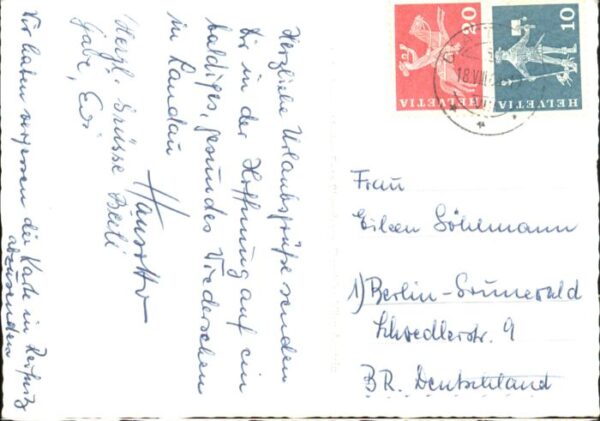 Herzliche Urlaubsgrüße senden
Dir in der Hoffnung auf ein
baldiges, gesundes Wiedersehen
in Landau
Hansotto
Herzl. Grüsse Betti
Gabi, Edi
Wir haben vergessen die Karte in
abzusenden
20
HELVETIA
10
HELVETIA
18.VIII
Frau
Eileen Söhlmann
1) Berlin-Grunewald
Schwedlerstr. 9
BR. Deutschland